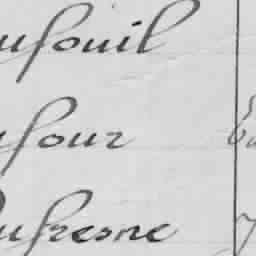 ufouil
ufour
Dufresne